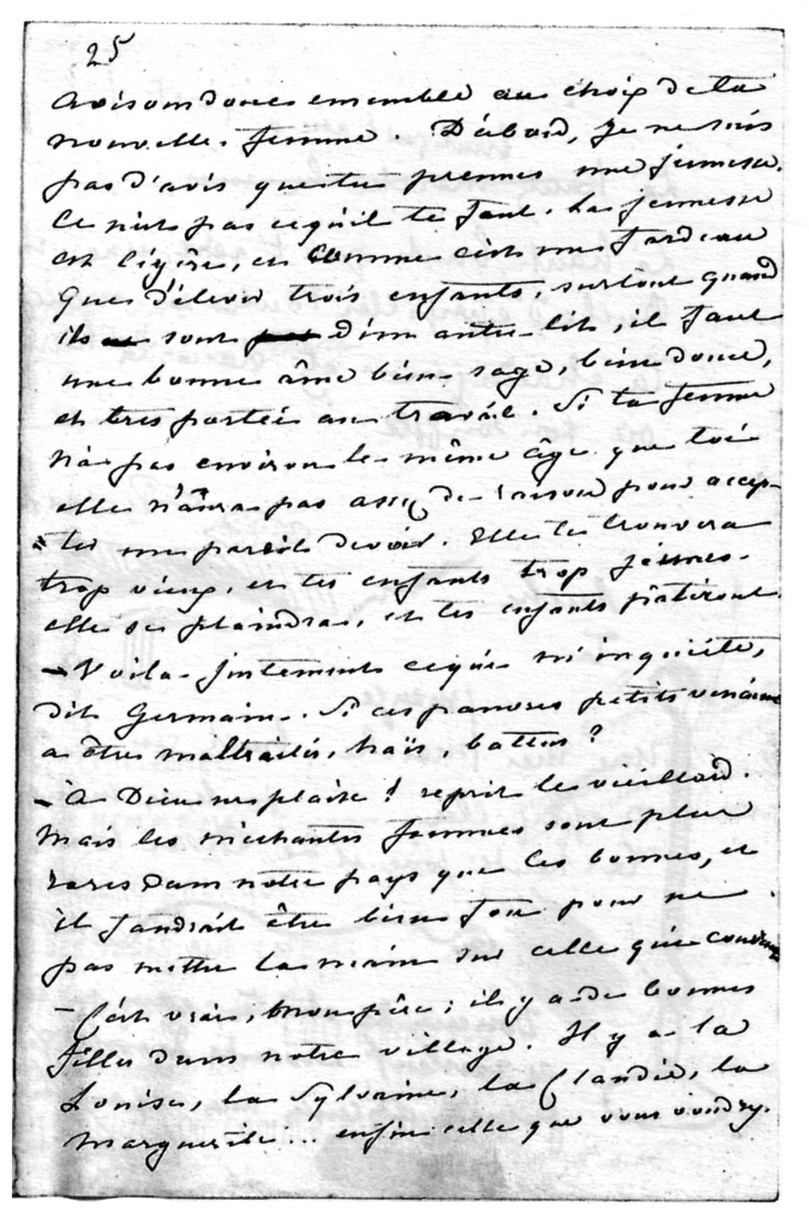 25
Avisons donc ensemble au choix de ta
nouvelle femme. D'abord, je ne suis
pas d'avis que tu prennes une jeunesse.
Ce n'est pas ce qu'il te faut. La jeunesse
est légère, et comme c'est un fardeau
que d'élever trois enfants, surtout quand
ils sont d'un autre lit, il faut
une bonne âme bien sage, bien douce,
et très portée au travail. Si ta femme
n'a pas environ le même âge que toi
elle n'aura pas assez de raison pour accep-
ter un pareil devoir. Elle te trouvera
trop vieux, et tes enfants trop jeunes.
elle se plaindra, et tes enfants pâtiront.
– Voilà justement ce qui m'inquiète,
dit Germain. Si ces pauvres petits venaient
à être maltraités, haïs, battus?
– À Dieu ne plaise! reprit le vieillard.
Mais les méchantes femmes sont plus
rares dans notre pays que les bonnes, et
il faudrait être bien fou pour ne
pas mettre la main sur celle qui convient
– C'est vrai, mon père; il y a de bonnes
filles dans notre village. Il y a la
Louise, la Sylvaine, la Claudie, la
Marguerite... enfin celle que vous voudrez.